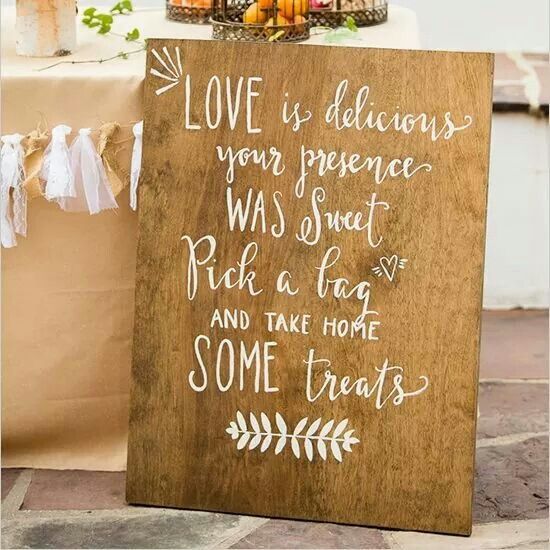 LOVE is delicious
your presence
WAS Sweet
Pick a bag
AND TAKE HOME
SOME treats